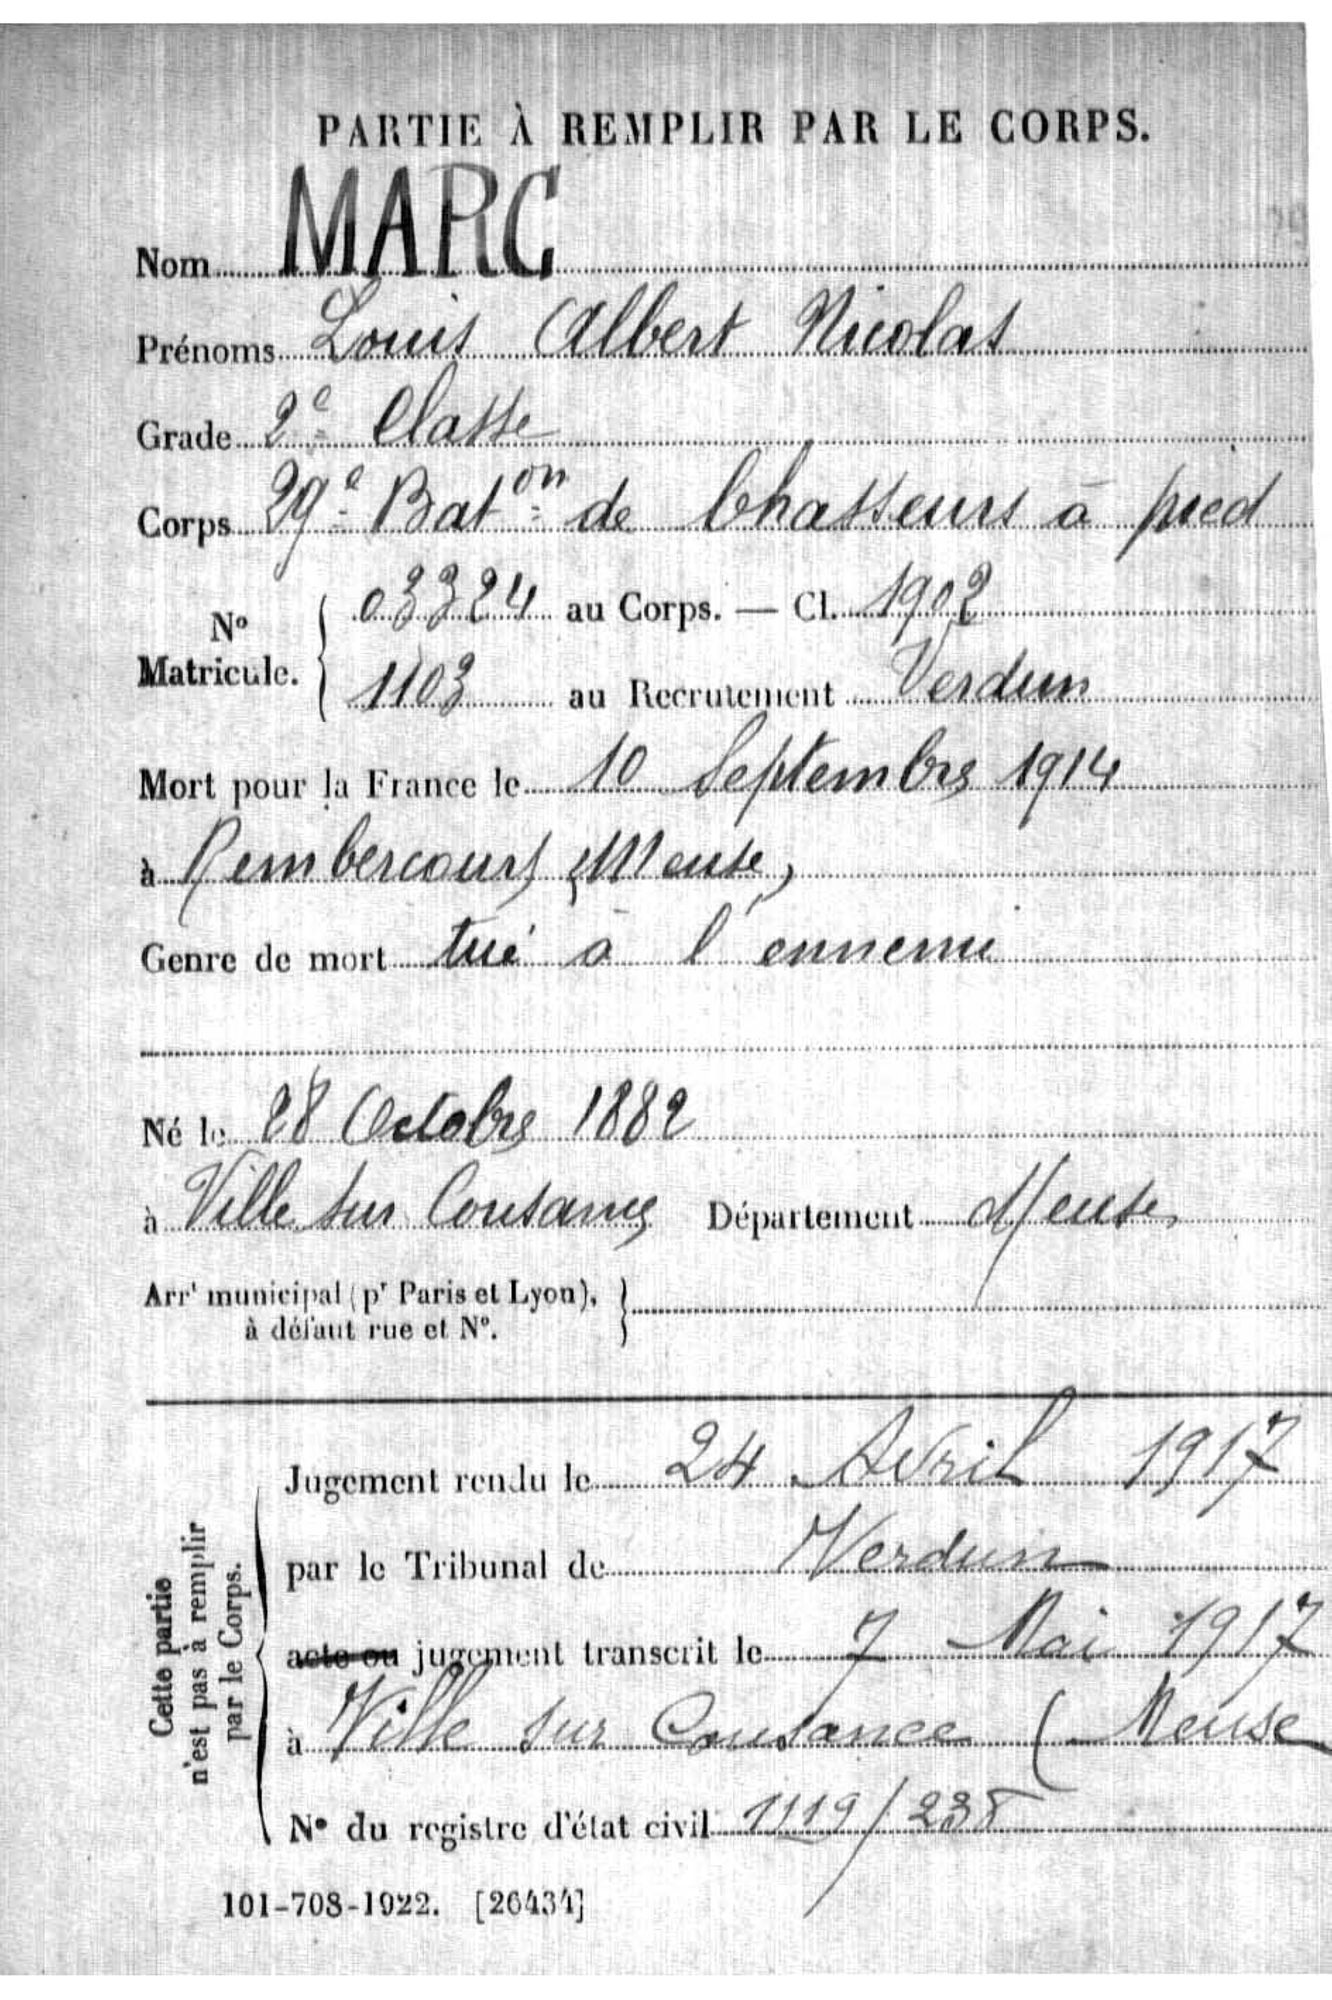 PARTIE À REMPLIR PAR LE CORPS.
Nom MARC
Prénoms Louis Albert Nicolas
Grade 2e Classe
Corps 29e Baton de Chasseurs à pied
No Matricule. { 03324 au Corps. — Cl. 1902
1103 au Recrutement Verdun
Mort pour la France le 10 Septembre 1914
à Rembercourt (Meuse)
Genre de mort tué à l'ennemi
Né le 28 Octobre 1882
à Ville sur Cousances Département Meuse
Arrt municipal (pr Paris et Lyon), }
à défaut rue et No.
Cette partie
n'est pas à remplir
par le Corps.
Jugement rendu le 24 Avril 1917
par le Tribunal de Verdun
acte ou jugement transcrit le 7 Mai 1917
à Ville sur Cousance (Meuse
No du registre d'état civil 1119/238
101-708-1922. [26434]